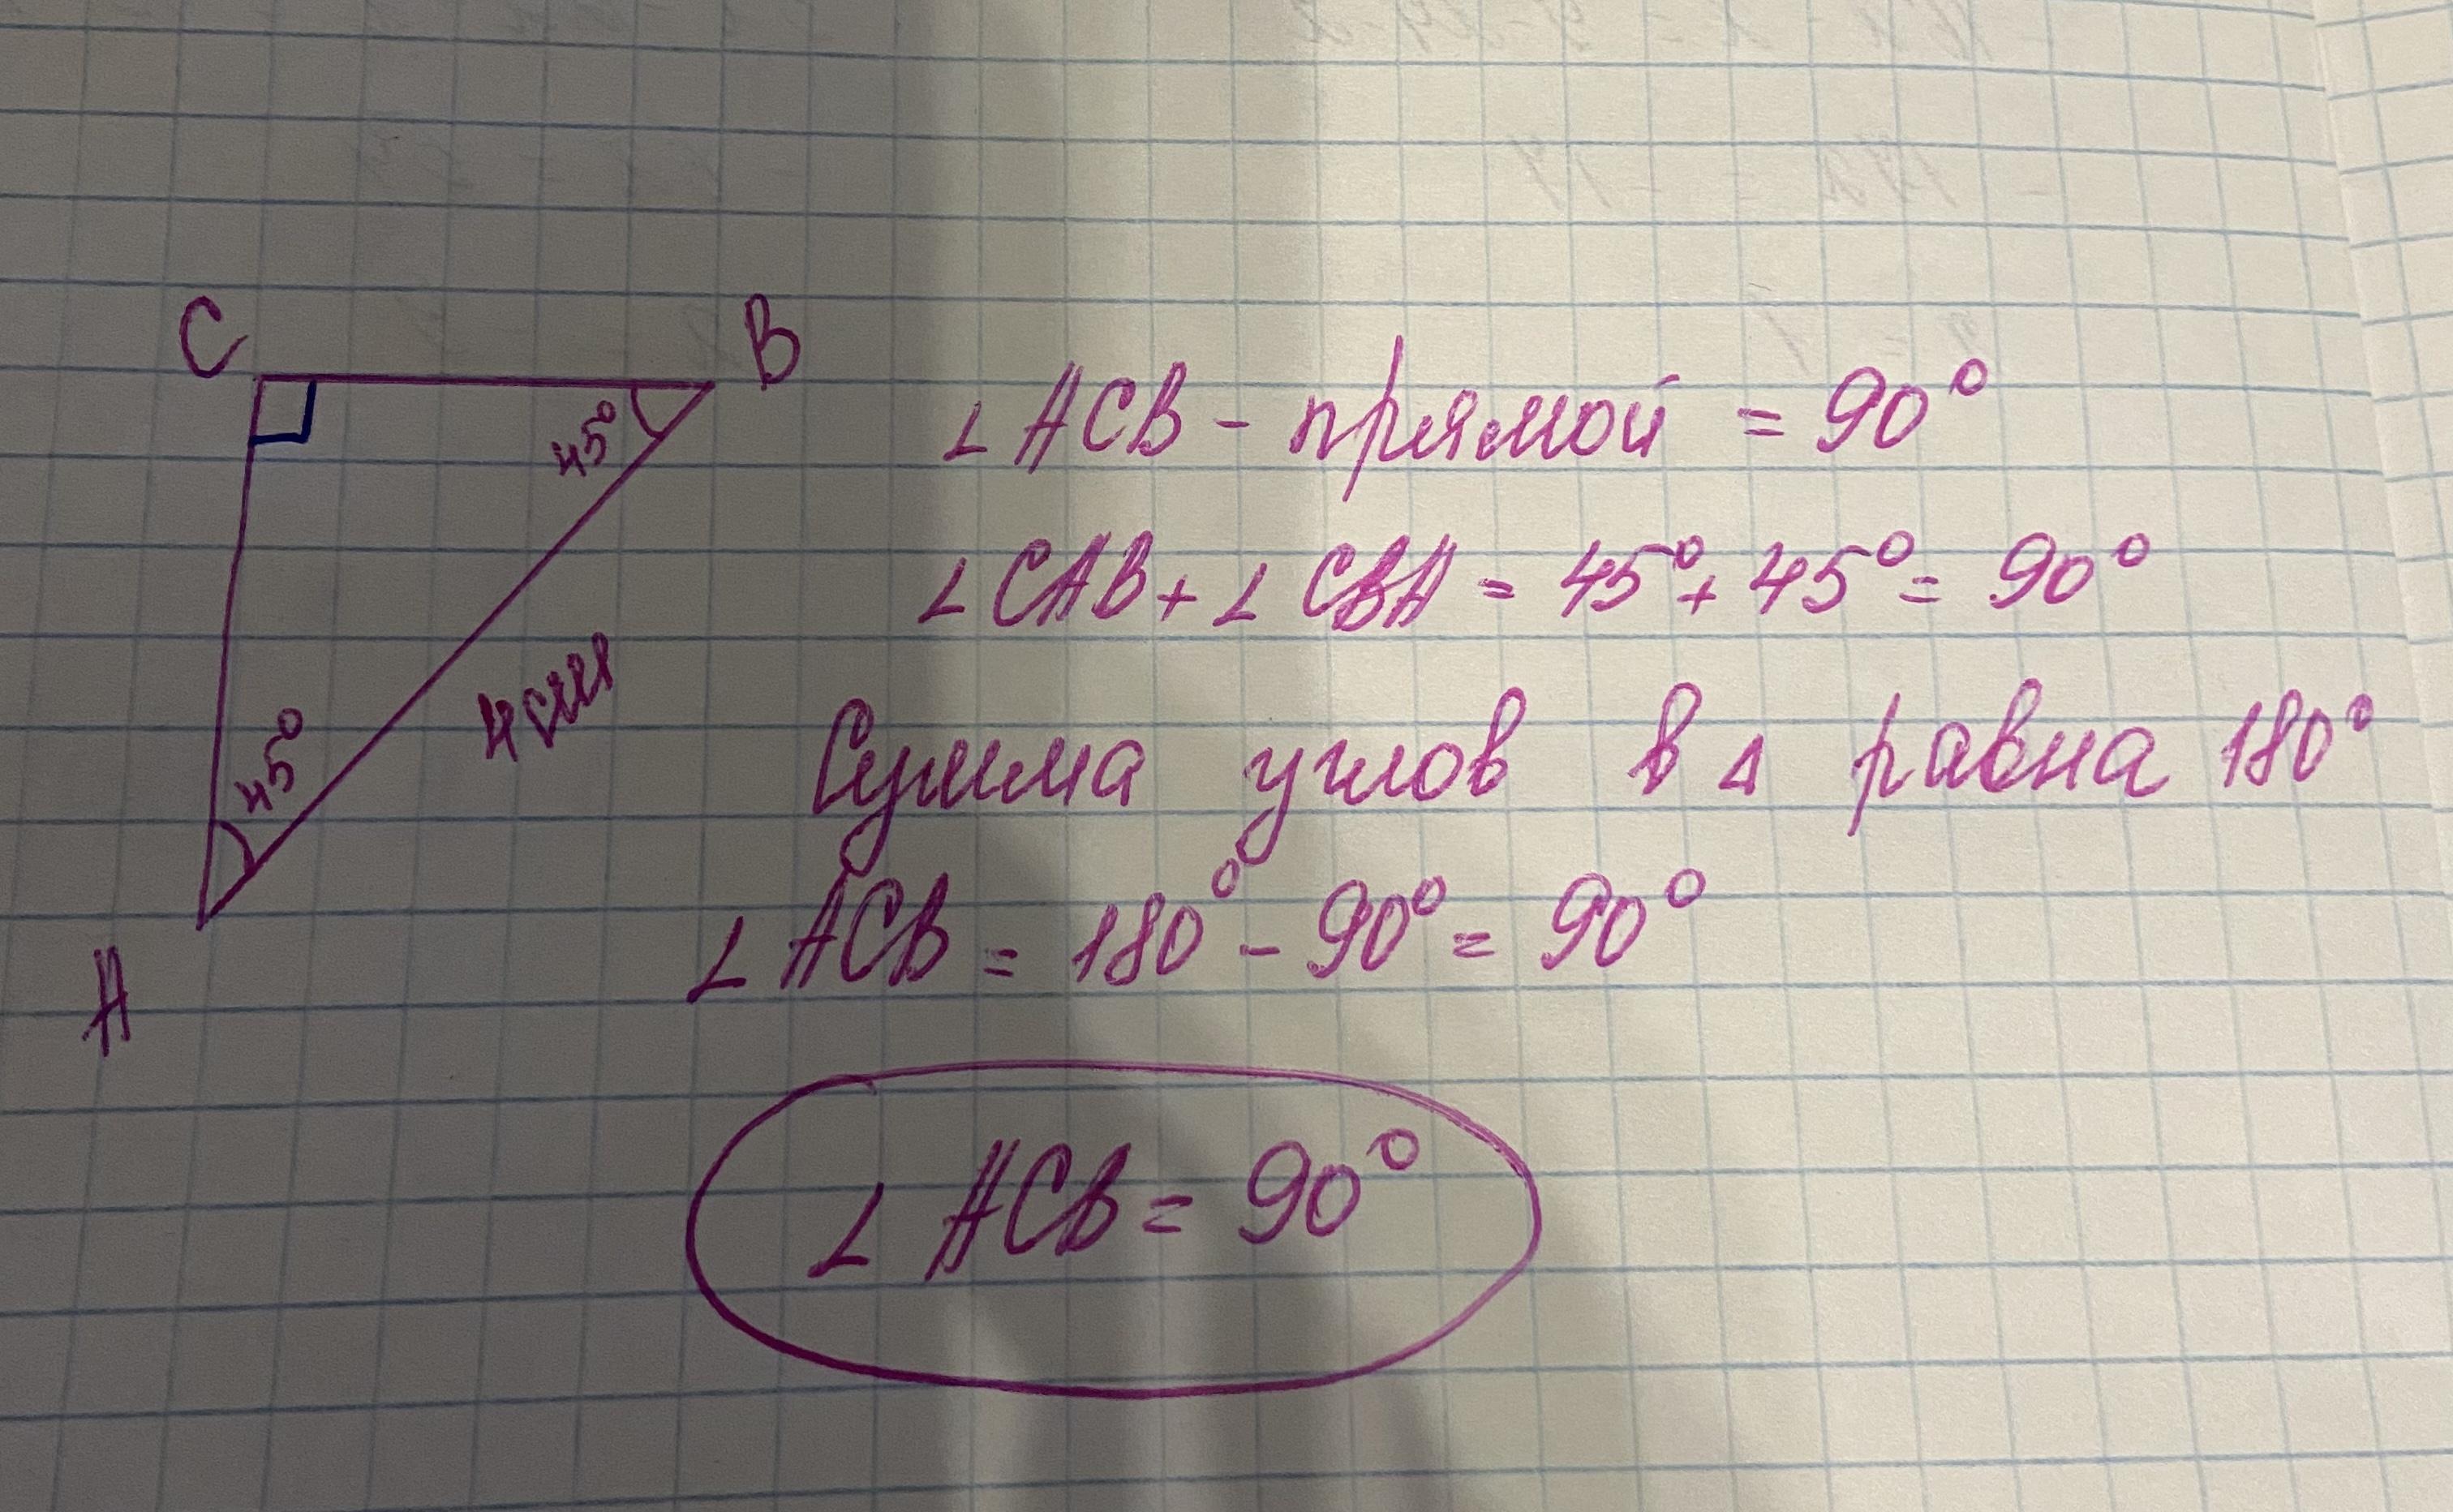 C
B
45°
45°
4 см
A
∠ ACB - прямой = 90°
∠ CAB + ∠ CBA = 45° + 45° = 90°
Сумма углов в △ равна 180°
∠ ACB = 180° - 90° = 90°
∠ ACB = 90°